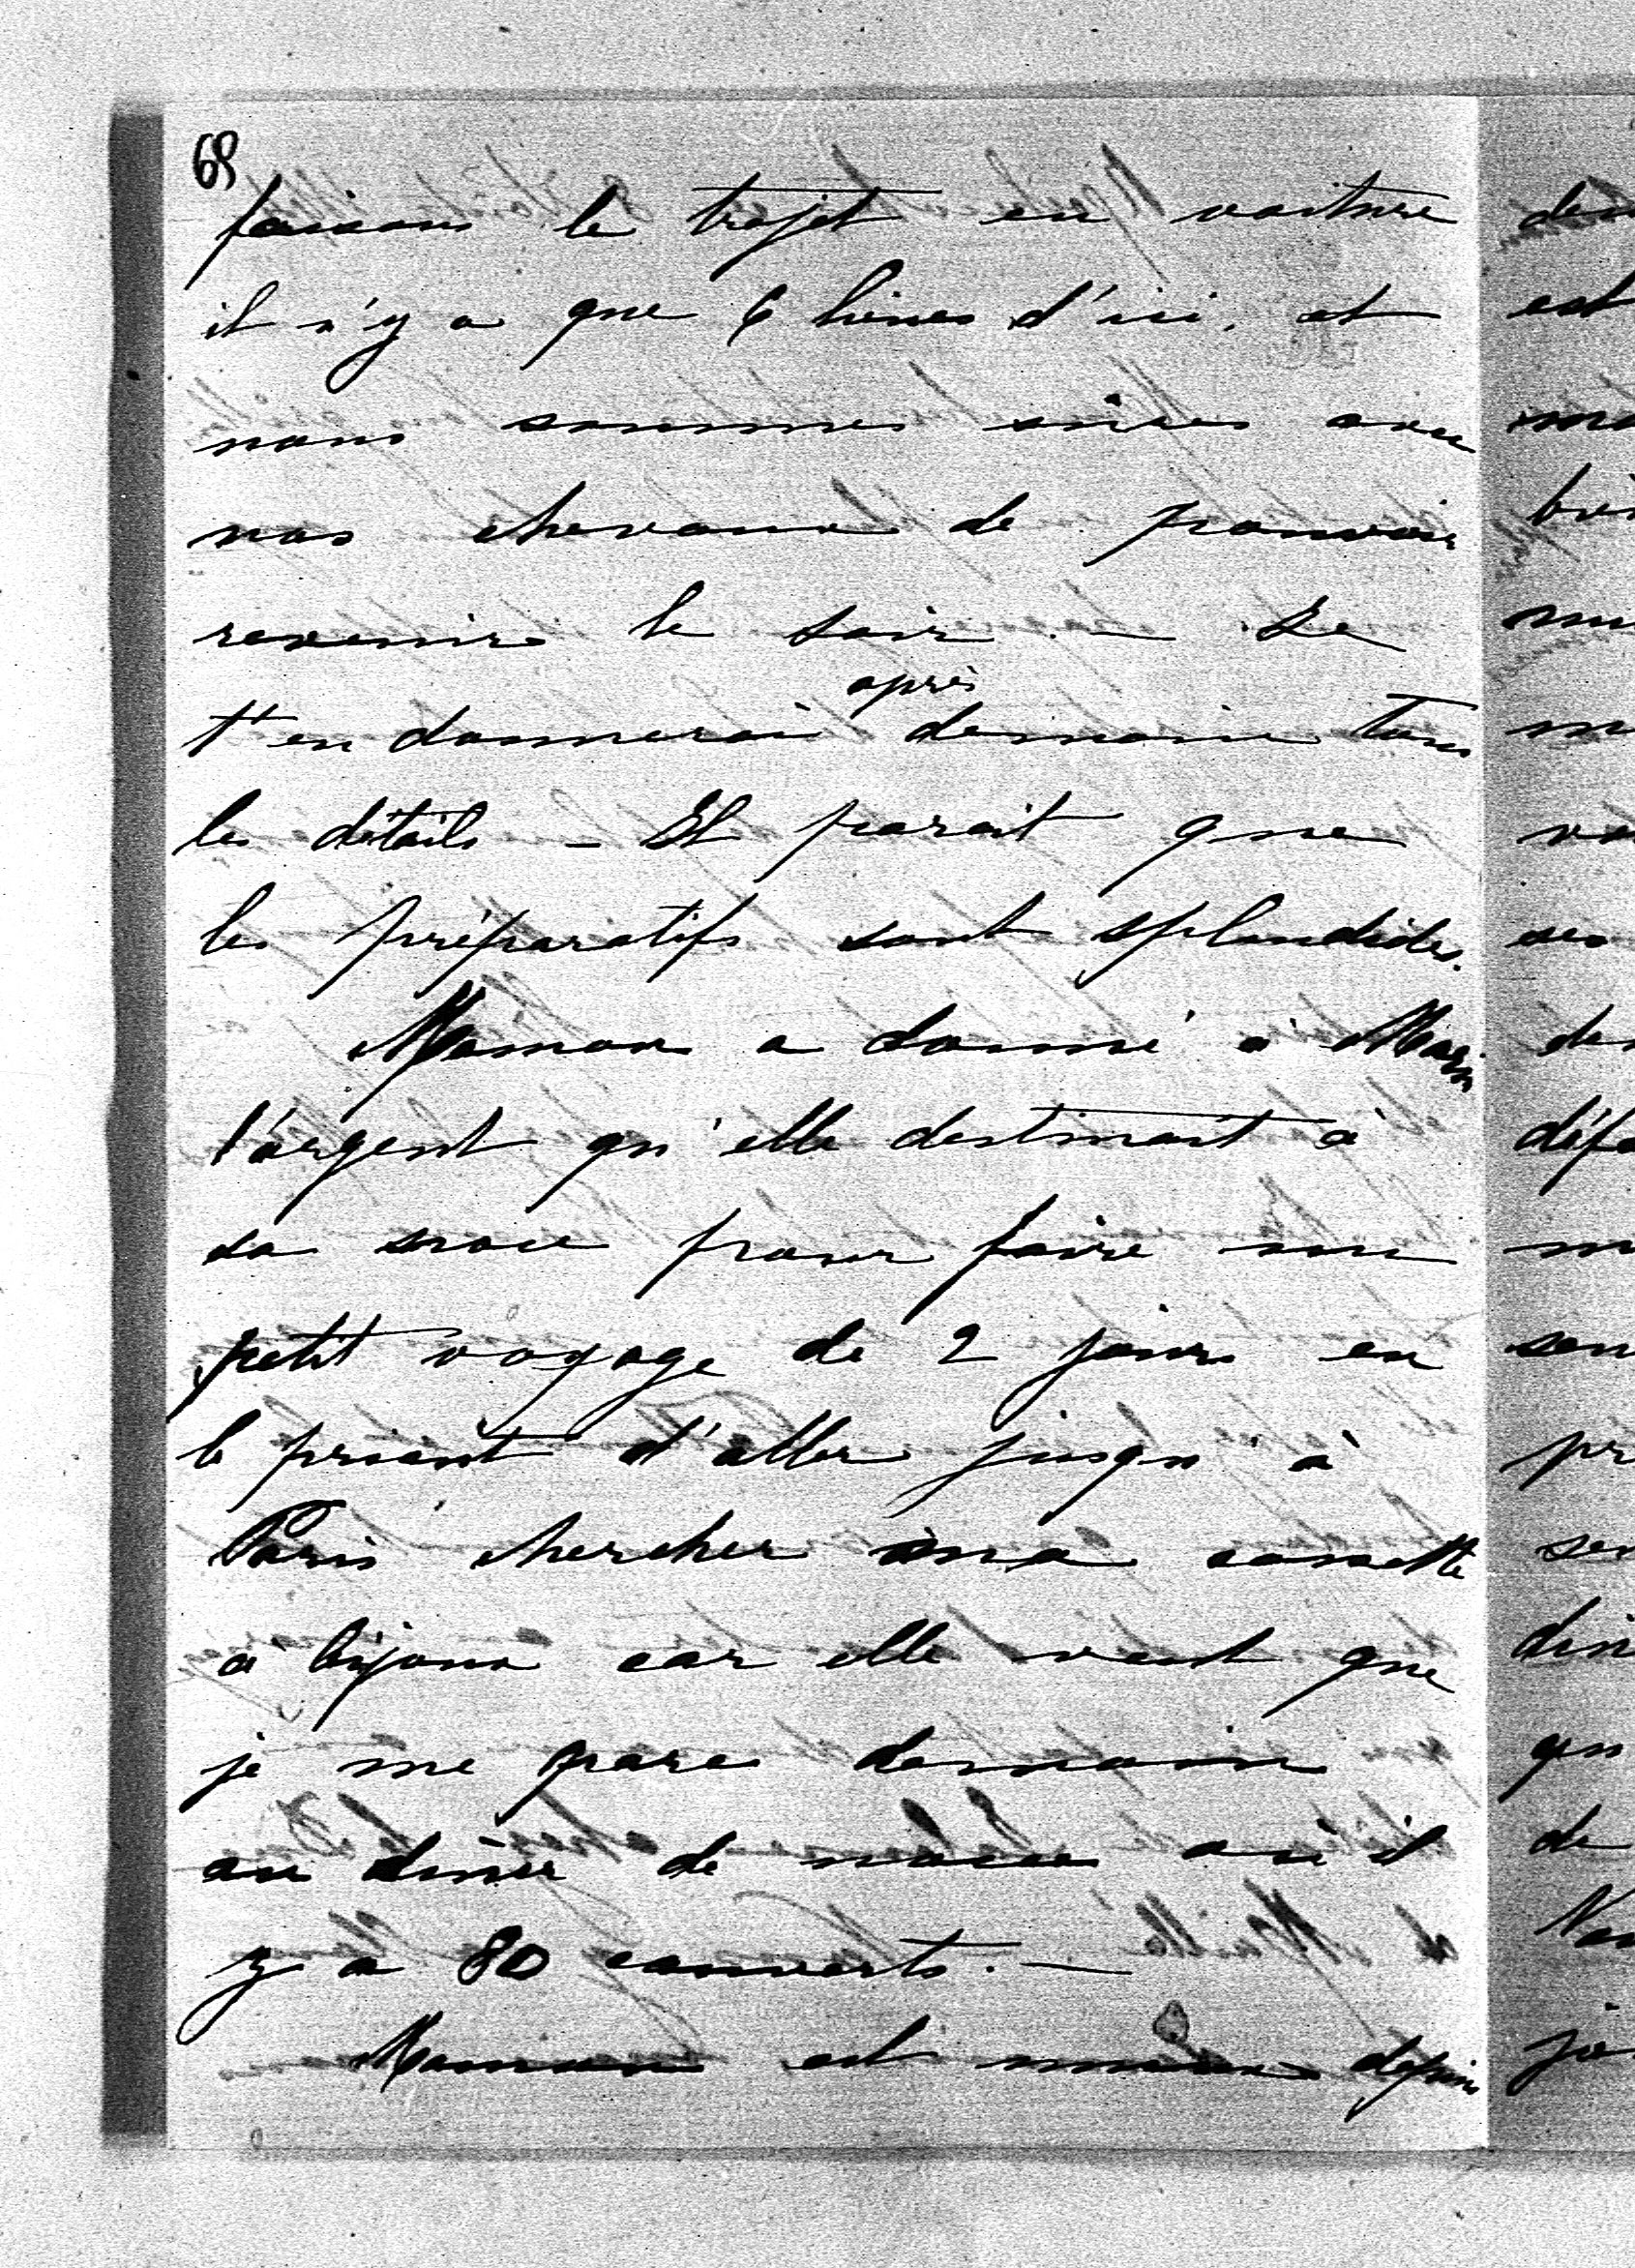 69
faisons le trajet en voiture
il n'y a que 6 lieues d'ici, et
nous sommes sûres avec
nos chevaux de pouvoir
revenir le soir. — Je
t'en donnerai après demain tous
les détails — Il parait que
les préparatifs sont splendides.
Maman a donné à Marin
l'argent qu'elle destinait à
sa noce pour faire un
petit voyage de 2 jours en
le priant d'aller jusqu'à
Paris chercher ma cassette
à bijoux car elle veut que
je me pare demain
au dîner de noces où il
y a 80 couverts. —
Maman est mieux depuis